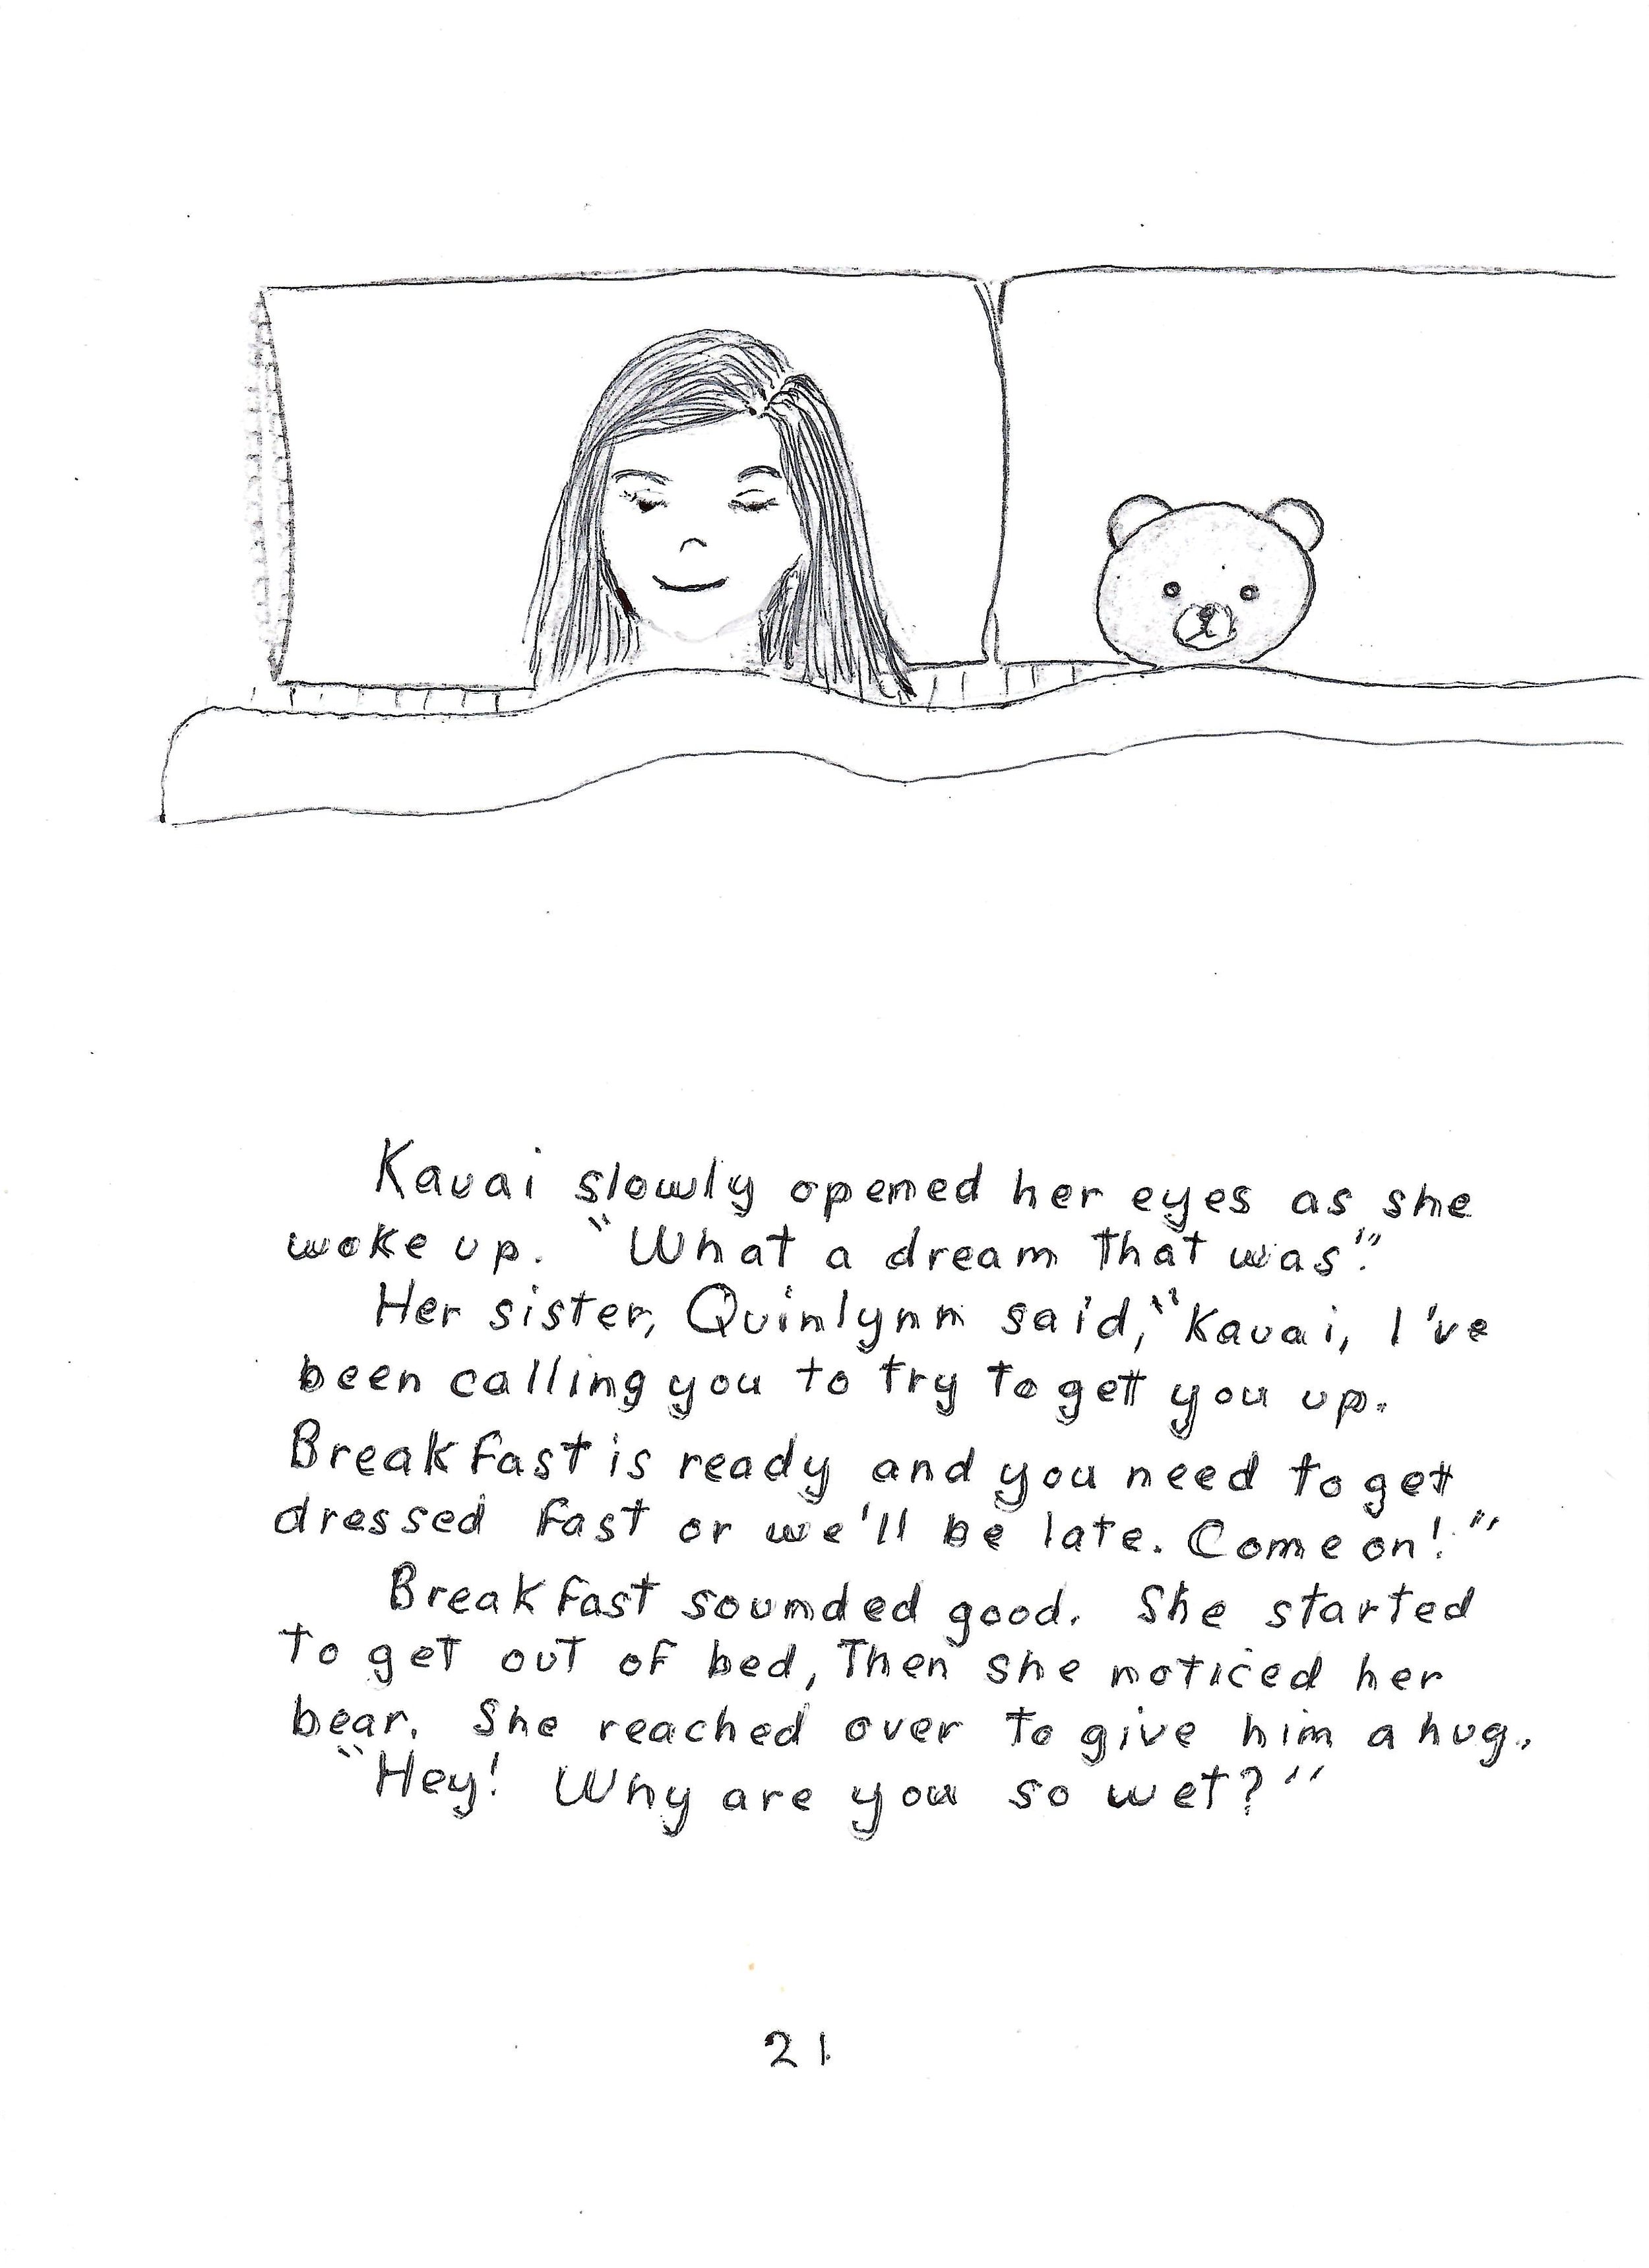 Kauai slowly opened her eyes as she
woke up. "What a dream that was."
Her sister, Quinlynn said, "Kauai, I've
been calling you to try to get you up.
Breakfast is ready and you need to get
dressed fast or we'll be late. Come on!"
Breakfast sounded good. She started
to get out of bed, Then she noticed her
bear. She reached over to give him a hug.
"Hey! Why are you so wet?"
21